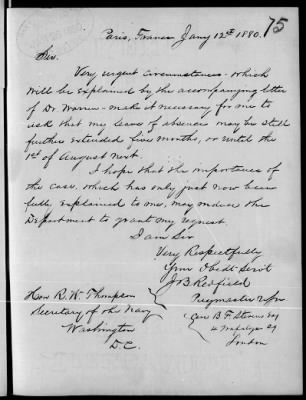 75
Paris, France Jany 12th 1880.
Sir.
Very urgent circumstances - which
will be explained by the accompanying letter
of Dr. Warren - make it necessary for me to
ask that my leave of absence may be still
further extended five months, or until the
1st of August next.
I hope that the importance of
the case, which has only just now been
fully explained to me, may induce the
Department to grant my request.
I am Sir
Very Respectfully
Your Obedt Servt
Jo B. Redfield
Hon R. W. Thompson
Paymaster USN
Secretary of the Navy
Care B. F. Stevens Esq
Washington
4 Trafalgar Sq
D.C.
London